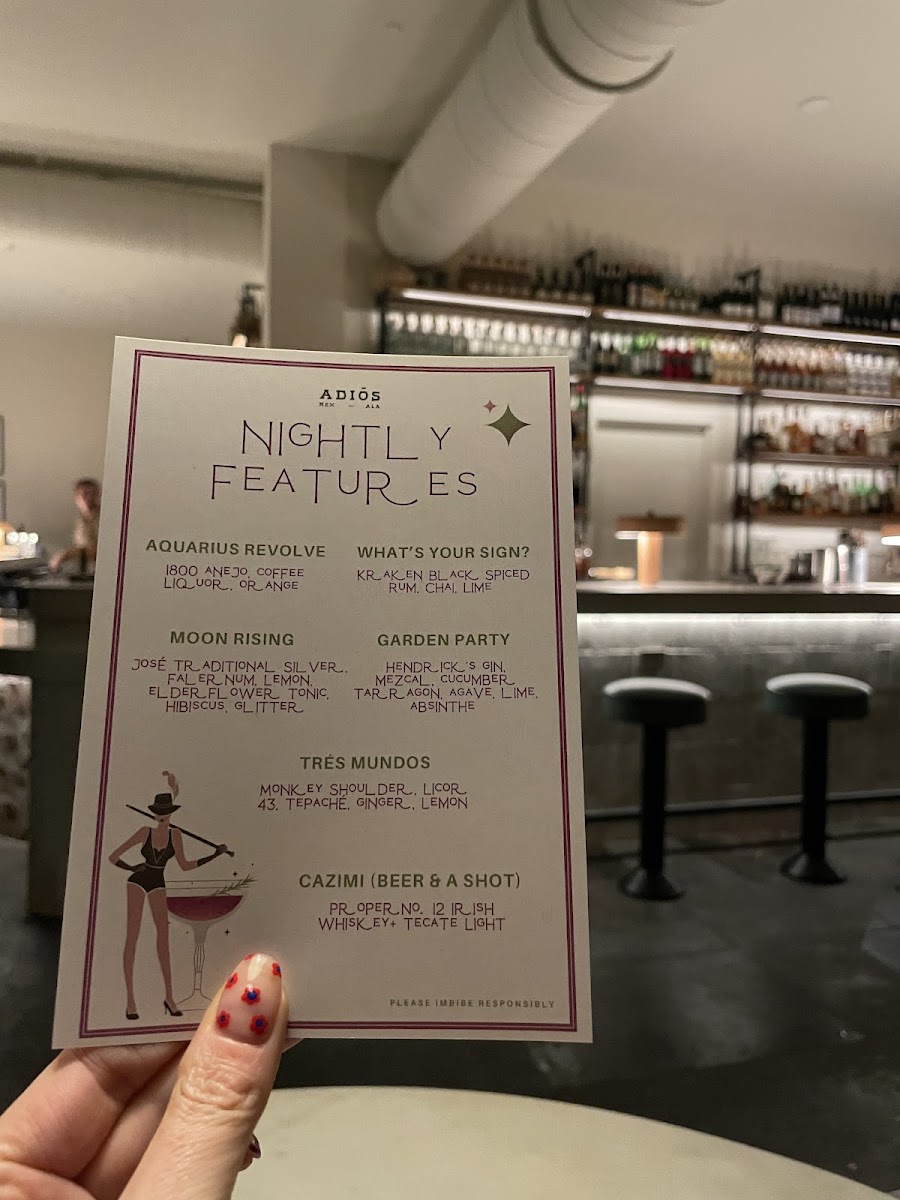 ADIÓS
MEX — ALA
NIGHTLY
FEATURES
AQUARIUS REVOLVE
1800 ANEJO, COFFEE
LIQUOR, ORANGE
WHAT'S YOUR SIGN?
KRAKEN BLACK SPICED
RUM, CHAI, LIME
MOON RISING
JOSÉ TRADITIONAL SILVER,
FALERNUM, LEMON,
ELDERFLOWER TONIC,
HIBISCUS, GLITTER
GARDEN PARTY
HENDRICK'S GIN,
MEZCAL, CUCUMBER
TARRAGON, AGAVE, LIME,
ABSINTHE
TRÉS MUNDOS
MONKEY SHOULDER, LICOR
43, TEPACHÉ, GINGER, LEMON
CAZIMI (BEER & A SHOT)
PROPER NO. 12 IRISH
WHISKEY+ TECATE LIGHT
PLEASE IMBIBE RESPONSIBLY